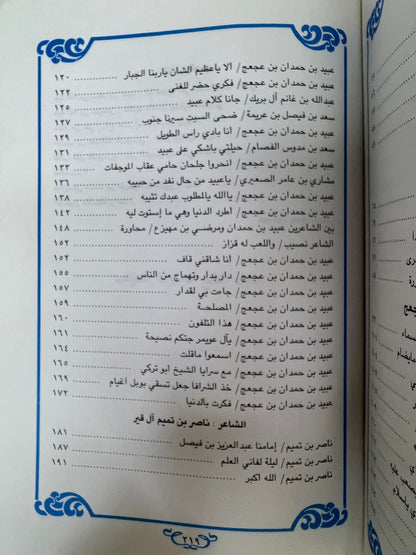 عبيد بن حمدان بن عجعج/ ألا ياعظيم الشان ياربنا الجبار ١٢٠
عبيد بن حمدان بن عجعج/ فكري حضر للغنى ١٢٢
عبدالله بن غانم آل بريك/ جانا كلام عبيد ١٢٥
سعد بن فيصل بن عريمة/ ضحى السبت سيرنا جنوب ١٢٧
عبيد بن حمدان بن عجعج/ أنا بادي راس الطويل ١٢٩
سعد بن مدوس الفصام/ حيلتي باشكي على عبيد ١٣١
عبيد بن حمدان بن عجعج/ انحروا جلحان حامي عقاب الموجفات ١٣٣
مشاري بن عامر الصعيري/ ياعبيد من حال نفد من حبيبه ١٣٦
عبيد بن حمدان بن عجعج/ ياالله يالمطلوب عبدك تثيبه ١٣٨
عبيد بن حمدان بن عجعج/ اطرد الدنيا وهي ما إستوت ليه ١٤٢
بين الشاعرين عبيد بن حمدان ومرضي بن مهيزع/ محاورة ١٤٨
الشاعر نصيب/ واللعب له قزاز ١٥٢
عبيد بن حمدان بن عجعج/ أنا شاقني قاف ١٥٢
عبيد بن حمدان بن عجعج/ دار بدار وتهماج من الناس ١٥٥
عبيد بن حمدان بن عجعج/ جاءت بي لقدار ١٥٧
عبيد بن حمدان بن عجعج/ المصلحة ١٥٩
عبيد بن حمدان بن عجعج/ هذا التلفون ١٦٠
عبيد بن حمدان بن عجعج/ يآل عويمر جتكم نصيحة ١٦١
عبيد بن حمدان بن عجعج/ اسمعوا ماقلت ١٦٤
عبيد بن حمدان بن عجعج/ مع سرايا الشيخ ابو تركي ١٦٥
عبيد بن حمدان بن عجعج/ خذ الشرافا جعل تسقي بوبل اغيام ١٦٩
عبيد بن حمدان بن عجعج/ فكرت بالدنيا ١٧٢
الشاعر : ناصر بن تميم آل قير
ناصر بن تميم/ إمامنا عبدالعزيز بن فيصل ١٨١
ناصر بن تميم/ ليلة لفاني العلم ١٨٧
ناصر بن تميم/ الله أكبر ١٩١
٢١٩